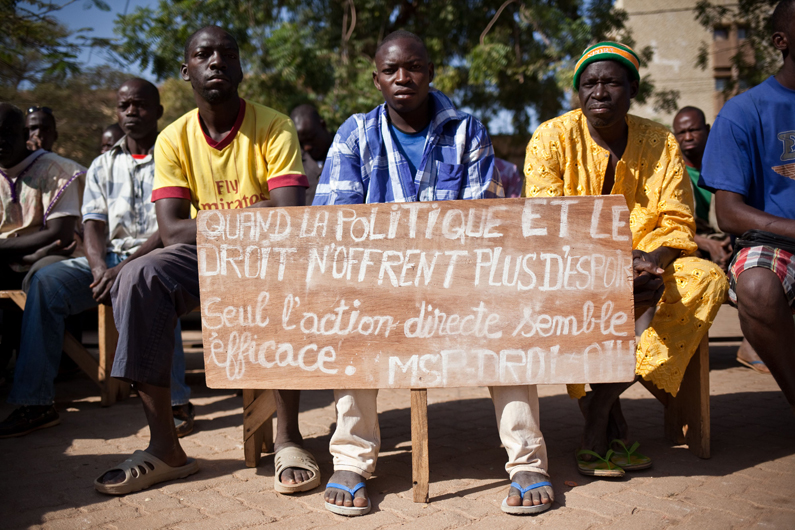 Fly
Emirates
QUAND LA POLITIQUE ET LE
DROIT N'OFFRENT PLUS D'ESPOIR
Seul l'action directe semble
éfficace.